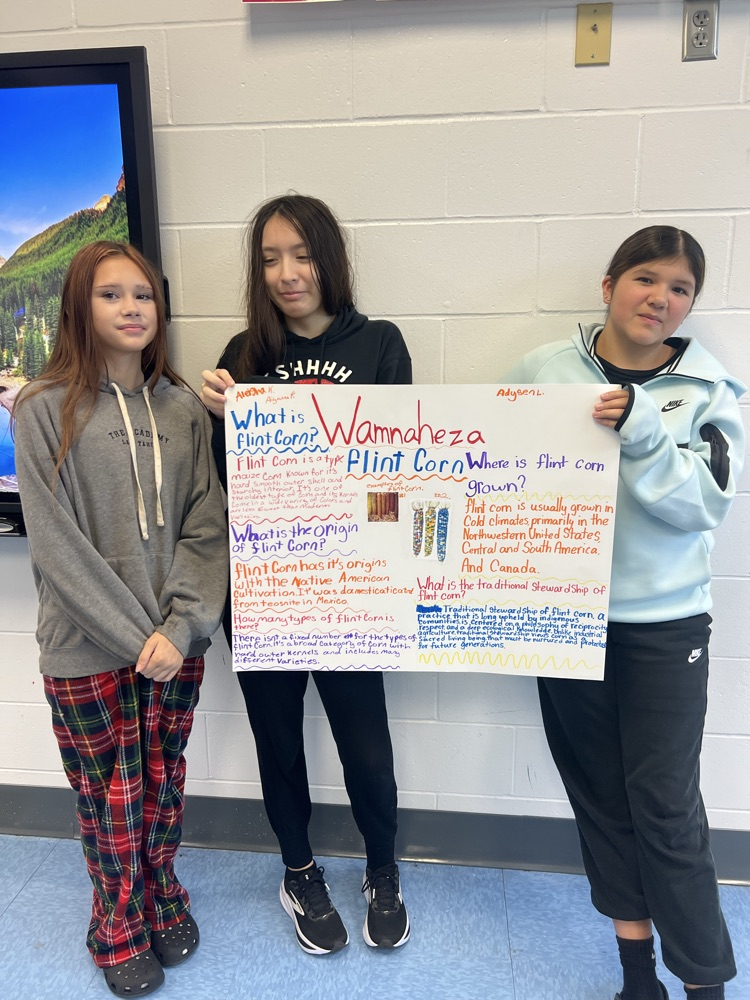 SHHHH
THE ACADEMY
NIKE
Adysen L.
Wamnaheza
Flint Corn
What is
flint Corn?
Flint Corn is a type
maize Corn known for its
hard smooth outer shell and
starchy interior. It's one of
the oldest type of corn and its Kernels
Come in a wide variety of Colors and
are less
What is the origin
of flint Corn?
Flint Corn has it's origins
with the Native American
Cultivation. It was damesticated
from teosite in Mexico.
How many types of flint Corn is
there?
There isn't a fixed number for the types of
flint Corn. it's a broad Category of Corn with
hard outer Kernels and includes many
different varieties.
examples of
flint Corn.
Where is flint corn
grown?
flint corn is usually grown in
Cold climates, primarily in the
Northwestern United States,
Central and South America.
And Canada.
What is the traditional Stewardship of
flint corn?
Traditional Stewardship of flint corn, a
practice that is long upheld by indigenous
Communities is centered on a philosophy of reciprocity
respect, and a deep ecological Knowledge. Unlike industrial
agriculture, traditional stewardship views corn as a
sacred living being that must be nurtured and protected
for future generations.